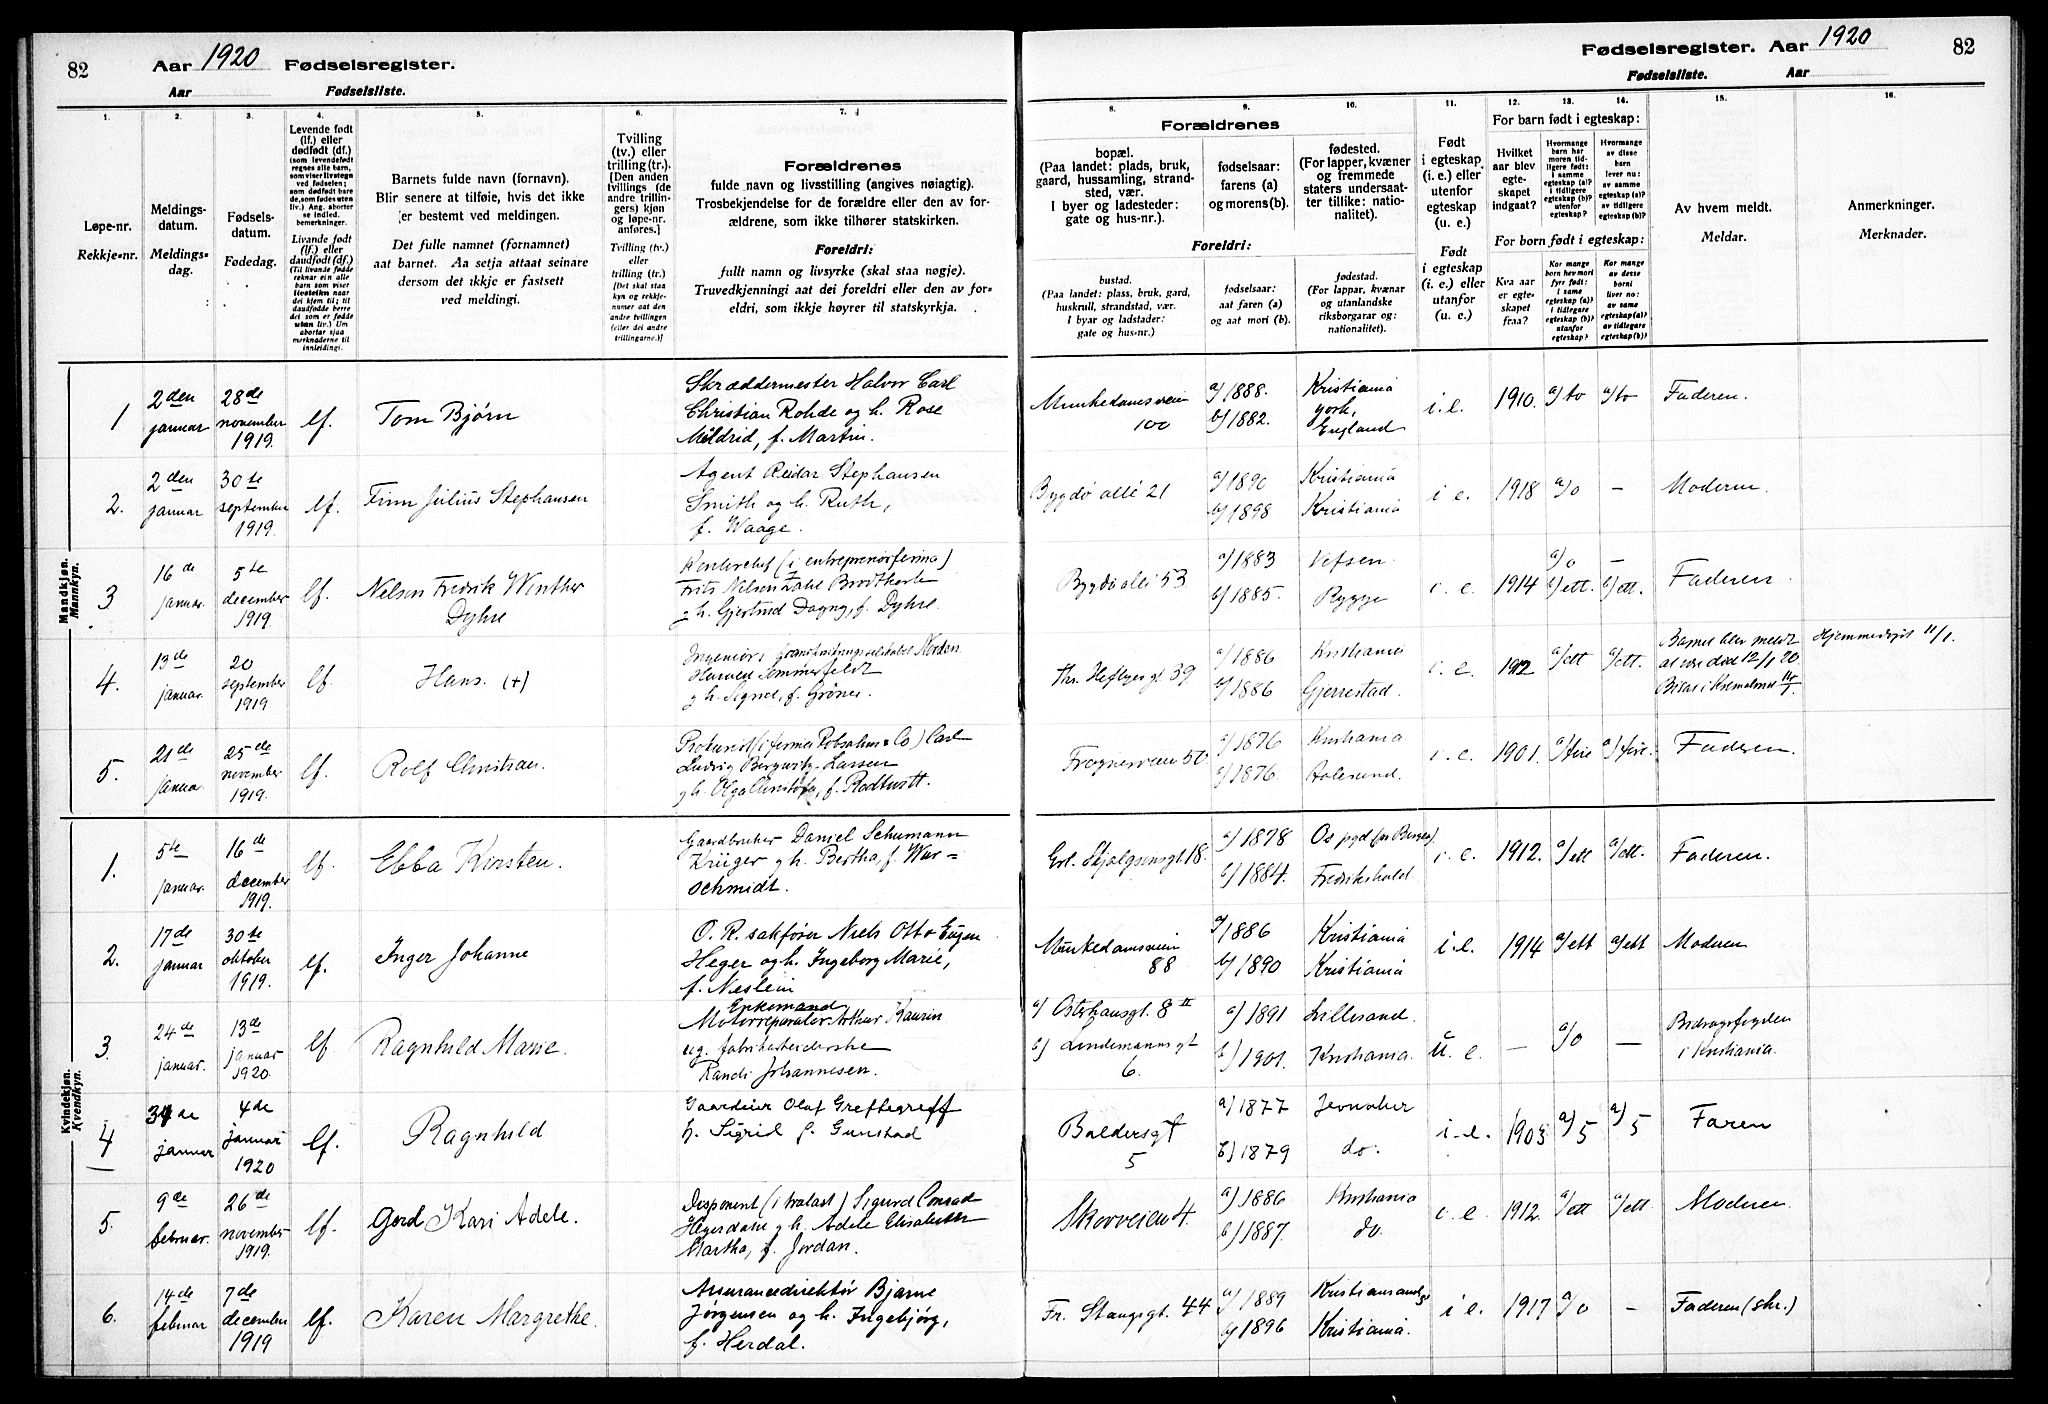 82
Aar 1920 Fødselsregister.
Aar Fødselsliste.
Fødselsregister. Aar 1920
82
Fødselsliste. Aar
1.
2.
3.
4.
5.
6.
7.
8.
9.
10.
11.
12.
13.
14.
15.
16.
Løpe-nr.
Rekkje-nr.
Meldings-
datum.
Meldings-
dag.
Fødsels-
datum.
Fødedag.
Levende født
(lf.) eller
dødfødt (df.)
(som levendefødt
regnes alle barn,
som viser livstegn
ved fødselen;
som dødfødt bare
de, som fødes uten
liv.) Ang. aborter
se indled.
bemerkninger.
Livande født
(lf.) eller
daudfødt (df.)
(Til livande fødde
reknar ein alle
barn som viser
livsteikn naar
dei kjem til; til
daudfødde berre
dei som er fødde
utan liv.) Um
abortar sjaa
merknaderne til
innleidingi.
Barnets fulde navn (fornavn).
Blir senere at tilføie, hvis det ikke
er bestemt ved meldingen.
Det fulle namnet (fornamnet)
aat barnet. Aa setja attaat seinare
dersom det ikkje er fastsett
ved meldingi.
Tvilling
(tv.) eller
trilling (tr.).
[Den anden
tvillings (de
andre trillin-
gers) kjøn
og løpe-nr.
anføres.]
Tvilling (tv.)
eller
trilling (tr.)
[Det skal staa
kyn og rekkje-
numer aat den
andre tvillingen
(eller dei andre
trillingarne.)]
Forældrenes
fulde navn og livsstilling (angives nøiagtig).
Trosbekjendelse for de forældre eller den av for-
ældrene, som ikke tilhører statskirken.
Foreldri:
fullt namn og livsyrke (skal staa nøgje).
Truvedkjenningi aat dei foreldri eller den av for-
eldri, som ikkje høyrer til statskyrkja.
Forældrenes
bopæl.
(Paa landet: plads, bruk,
gaard, hussamling, strand-
sted, vær.
I byer og ladesteder:
gate og hus-nr.).
fødselsaar:
farens (a)
og morens (b).
fødested.
(For lapper, kvæner
og fremmede
staters undersaat-
ter tillike: natio-
nalitet).
Foreldri:
bustad.
(Paa landet: plass, bruk, gard,
huskrull, strandstad, vær.
I byar og ladstader:
gate og hus-nr.)
fødselsaar:
aat faren (a)
og aat mori (b).
fødestad.
(For lappar, kvænar
og utanlandske
riksborgarar og:
nationalitet).
Født
i egteskap
(i. e.) eller
utenfor
egteskap
(u. e.)
Født
i egteskap
(i. e.) eller
utanfor
(u. e.)
For barn født i egteskap:
Hvilket
aar blev
egte-
skapet
indgaat?
Hvormange
barn har
moren tid-
ligere født:
i samme
egteskap (a)?
i tidligere
egteskap (b)?
utenfor
egteskap?
Hvormange
av disse
barn
lever nu:
av samme
egteskap (a)?
av tidligere
egteskap (b)?
For born født i egteskap:
Kva aar
er egte-
skapet
fraa?
Kor mange
born hev mori
fyrr født:
i same
egteskap (a)?
i tidlegare
egteskap (b)?
utanfor
egteskap?
Kor mange
av desse
borni
liver no:
av same
egteskap (a)?
av tidlegare
egteskap (b)?
Av hvem meldt.
Meldar.
Anmerkninger.
Merknader.
Mandkjøn.
Mannkyn.
1 2den januar 28de november 1919. lf. Tom Bjørn
Skræddermester Halvor Carl
Christian Rohde og h. Rose
Mildrid, f. Martin.
Munkedamsveien 100 a/ 1888. b/ 1882. Kristiania York, England i.e. 1910. a/ to a/ to Faderen.
2. 2den januar 30te september 1919. lf. Finn Julius Stephansen
Agent Reidar Stephansen
Smith og h. Ruth,
f. Waage.
Bygdø allé 21 a/ 1890 b/ 1898 Kristiania Kristiania i e. 1918 a/ 0 — Moderen.
3 16de januar. 5te december 1919. lf. Nelson Fredrik Winther Dyhre
(i entreprenørfirma)
Frits Nelson Brodtkorb
og h. Gjertrud Dagny, f. Dyhre.
Bygdø allé 53 a/ 1883 b/ 1885. Vefsen. Rygge i. e. 1914 a/ 0 b/ ett. — b/ ett. Faderen.
4. 13de januar. 20 september 1919 lf. Hans. (+)
Ingeniør Norden
Harald Sommerfeldt
og h. Signe, f. Grøner.
Ths. Heftyesgt 39. a/ 1886 b/ 1886 Kristiania Gjerrestad. i. e. 1912 a/ ett a/ ett. Barnet blev meldt
at være død 12/1 20.
Hjemmedøpt 11/1.
5. 21de januar. 25de november 1919. lf. Rolf Christian.
Prokurist (i firma Robsahm & Co) Carl
Ludvig Lassen
og h. Olga f. Rodtwitt.
Frognerveien 50 a/ 1876 b/ 1876. Kristiania Aalesund. i. e. 1901. a/ fire a/ fire. Faderen.
Kvindekjøn.
Kvendkyn.
1. 5te januar. 16de december 1919. lf. Ebba Kirsten.
Gaardbruker Daniel Schumann
Krüger og h. Bertha, f. War=
schmidt.
Erl. Skjalgsonsgt 18. a/ 1878 b/ 1884. Os pgd (for Bergen). Fredrikshald i. e. 1912. a/ ett a/ ett. Faderen.
2. 17de januar 30te oktober 1919. lf. Inger Johanne
O. R. sakfører Niels Otto Eugen
Heger og h. Ingeborg Marie,
f. Neslein
Munkedamsveien 88 a/ 1886 b/ 1890 Kristiania Kristiania i. e. 1914 a/ ett a/ ett Moderen
3. 24de januar. 13de januar 1920. lf Ragnhild Marie.
Enkemand
Motorreparatør Arthur Kaurin
ug. fabrikarbeiderske
Randi Johannesen.
a) Osterhausgt. 8 II b) Lindemannsgt 6. a) 1891 b) 1901. Lillesand. Kristiania. u. e. — a/ 0 — Bidragsfogden
i Kristiania.
4 januar 4de januar 1920 lf. Ragnhild
Gaardeier Olaf Greftegreff
h. Sigrid f. Gunstad
Baldersgt 5 a) 1877 b) 1879 Jevnaker do. i. e. 1903 a) 5 a) 5 Faren
5. 9de februar. 26de november 1919. lf. Gerd Kari Adele.
Disponent (i trælast) Sigurd Conrad
Hegerdahl og h. Adele Elisabeth
Martha, f. Jordan.
Skovveien 4. a) 1886 b) 1887. Kristiania do. i. e. 1912. a/ ett a/ ett. Moderen.
6. 14de februar 7de december 1919 lf. Karen Margrethe.
Assurancedirektør Bjarne
Jørgensen og h. Ingebjørg,
f. Herdal.
Fr. Stangsgt. 44 a/ 1889 b/ 1896 Kristianssand S Kristiania. i e. 1917 a/ 0 — Faderen (skr.)